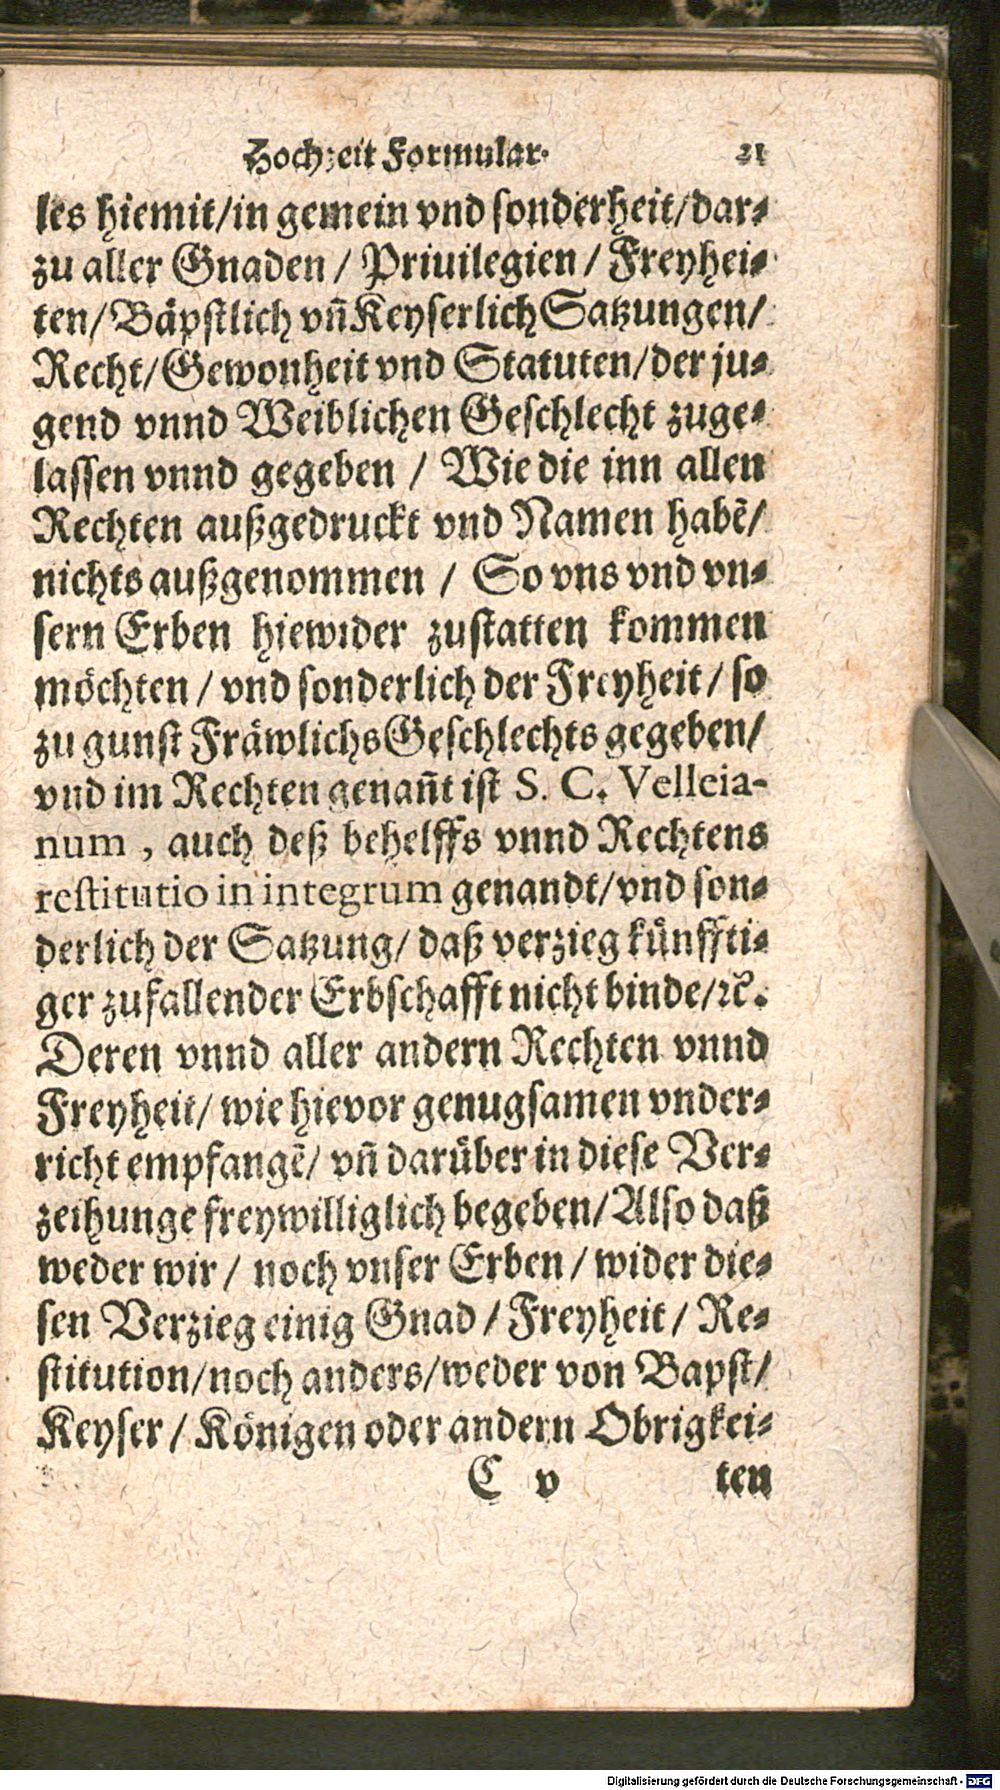 Hochzeit Formular. 21
les hiemit/in gemein vnd sonderheit/dar-
zu aller Gnaden / Priuilegien / Freyhei-
ten/ Bäpstlich vñ Keyserlich Satzungen/
Recht/ Gewonheit vnd Statuten/der ju-
gend vnnd Weiblichen Geschlecht zuge-
lassen vnnd gegeben / Wie die inn allen
Rechten außgedruckt vnd Namen habẽ/
nichts außgenommen / So vns vnd vn-
sern Erben hiewider zustatten kommen
möchten / vnd sonderlich der Freyheit / so
zu gunst Fräwlichs Geschlechts gegeben/
vnd im Rechten genañt ist S. C. Velleia-
num , auch deß behelffs vnnd Rechtens
restitutio in integrum genandt/vnd son-
derlich der Satzung/ daß verzieg künffti-
ger zufallender Erbschafft nicht binde/ꝛc̃.
Deren vnnd aller andern Rechten vnnd
Freyheit/ wie hievor genugsamen vnder-
richt empfangẽ/ vñ darüber in diese Ver-
zeihunge freywilliglich begeben/ Also daß
weder wir / noch vnser Erben / wider die-
sen Verzieg einig Gnad / Freyheit / Re-
stitution/noch anders/weder von Bapst/
Keyser / Königen oder andern Obrigkei-
C v ten
Digitalisierung gefördert durch die Deutsche Forschungsgemeinschaft - DFG